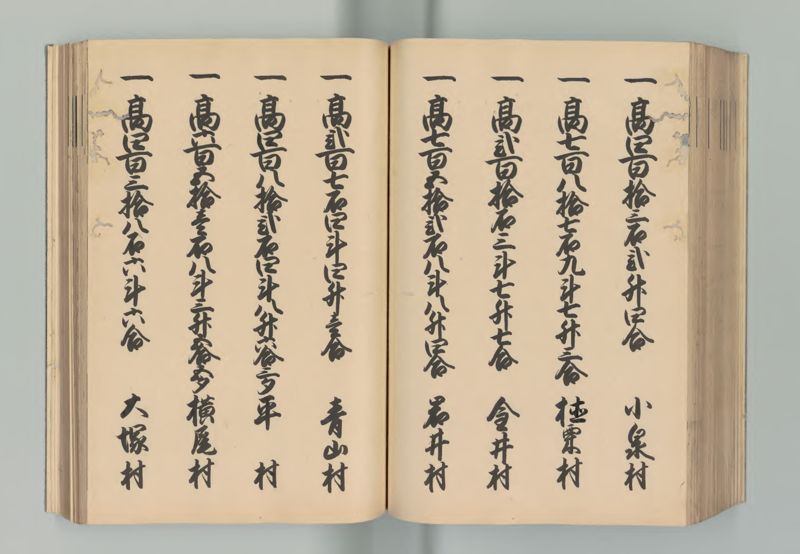 一 高四百拾三石弐升四合 小泉村
一 高七百八拾七石九斗七升三合 植栗村
一 高弐百拾石三斗七升七合 今井村
一 高七百五拾弐石八斗八升四合 岩井村
一 高弐百七石四斗四升壱合 青山村
一 高四百八拾弐石四斗八升六合三夕 平村
一 高六百五拾壱石八斗三升五合五夕 横尾村
一 高四百三拾八石六斗六合 大塚村